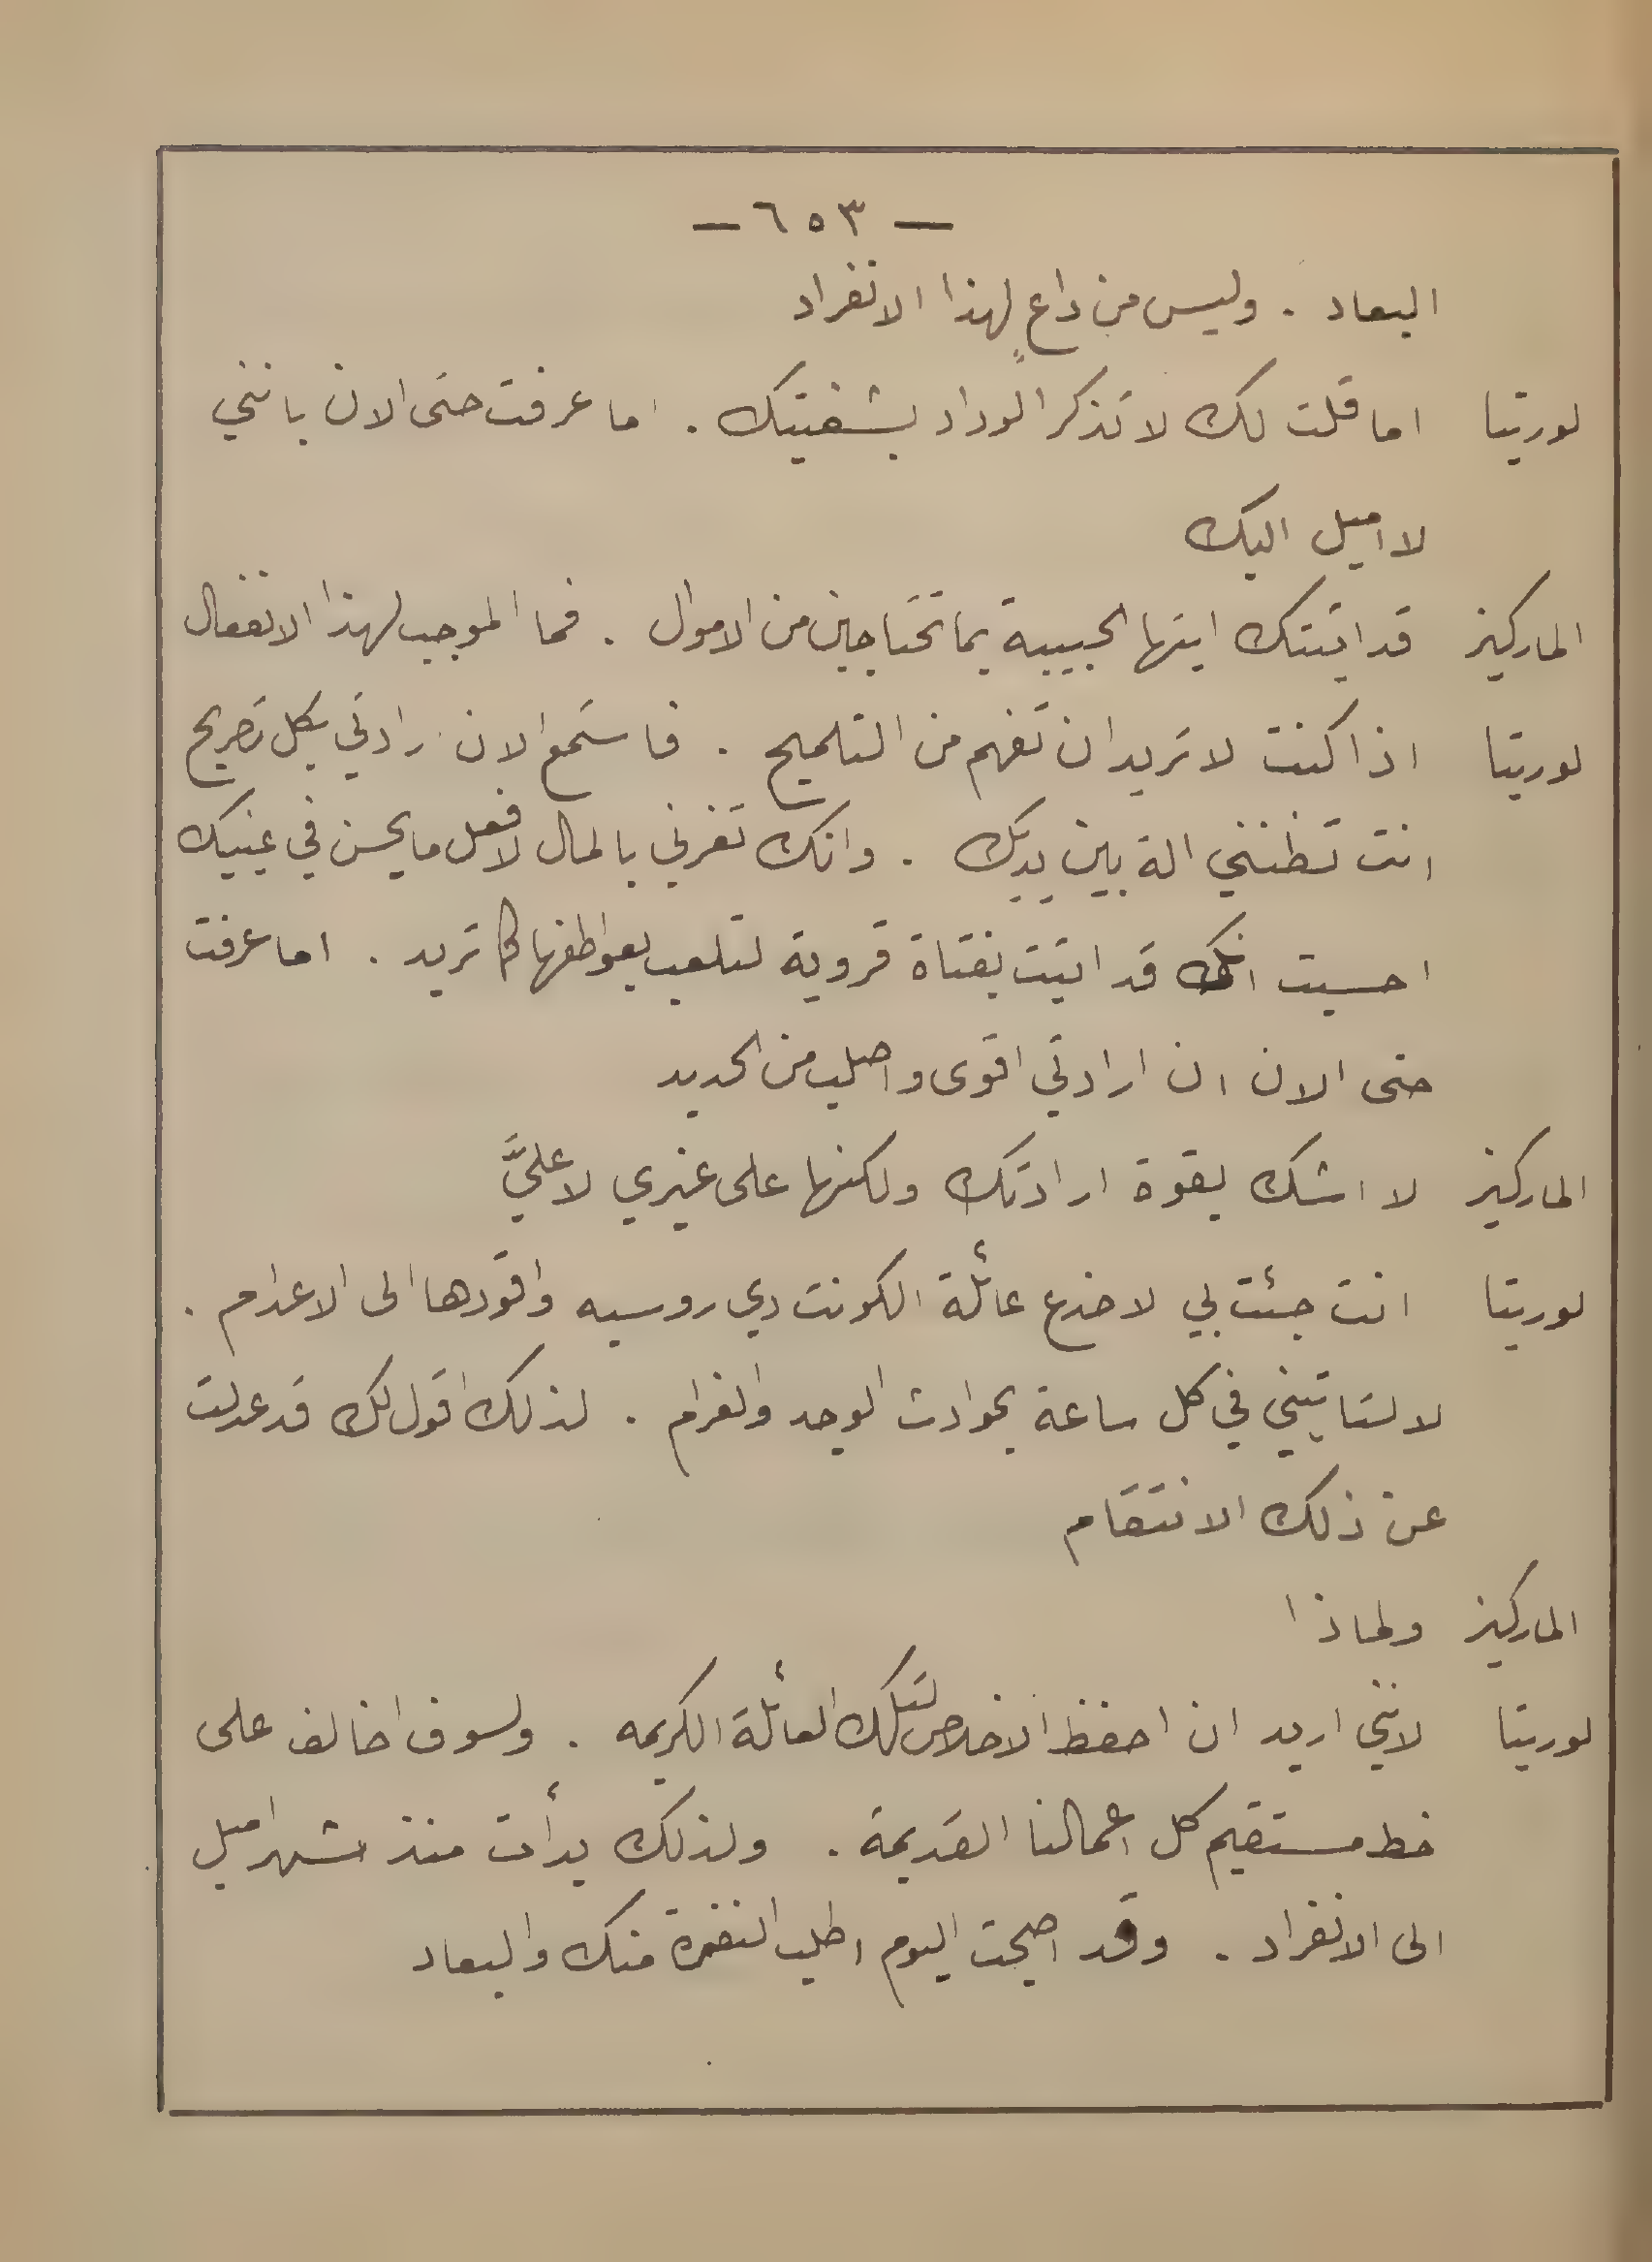 — ٦٥٣ —
البعاد . وليس من داعٍ لهذا الانفراد
لوريتا اما قلت لك لا تذكر الوداد بشفتيك . اما عرفت حتى الان بانني
لا اميل اليك
الماركيز قد اتيتك ايتها الحبيبة بما تحتاجين من الاموال . فما الموجب لهذا الانفعال
لوريتا اذا كنت لا تريد ان تفهم من التلميح . فاستمع الان رادتي بكل تصريح
انت تظنني الة بين يديك . وانك تغرني بالمال لافعل ما يحسن في عينيك
احسبت انك قد اتيت بفتاة قروية لتلعب بعواطفها كما تريد . اما عرفت
حتى الان ان ارادتي اقوى واصلب من الحديد
الماركيز لا اشك بقوة ارادتك ولكنها على غيري لا عليَّ
لوريتا انت جئت بي لاخدع عائلة الكونت دي روسيه واقودها الى الاعدام .
لا لتاتيني في كل ساعة بحوادث الوجد والغرام . لذلك اقول لك قد عدلت
عن ذلك الانتقام
الماركيز ولماذا
لوريتا لانني اريد ان احفظ الاخلاص لتلك العائلة الكريمه . ولسوف اخالف على
خط مستقيم كل اعمالنا القديمة . ولذلك بدأت منذ اشهر اميل
الى الانفراد . وقد اصبحت اليوم اطلب النفرة منك والبعاد